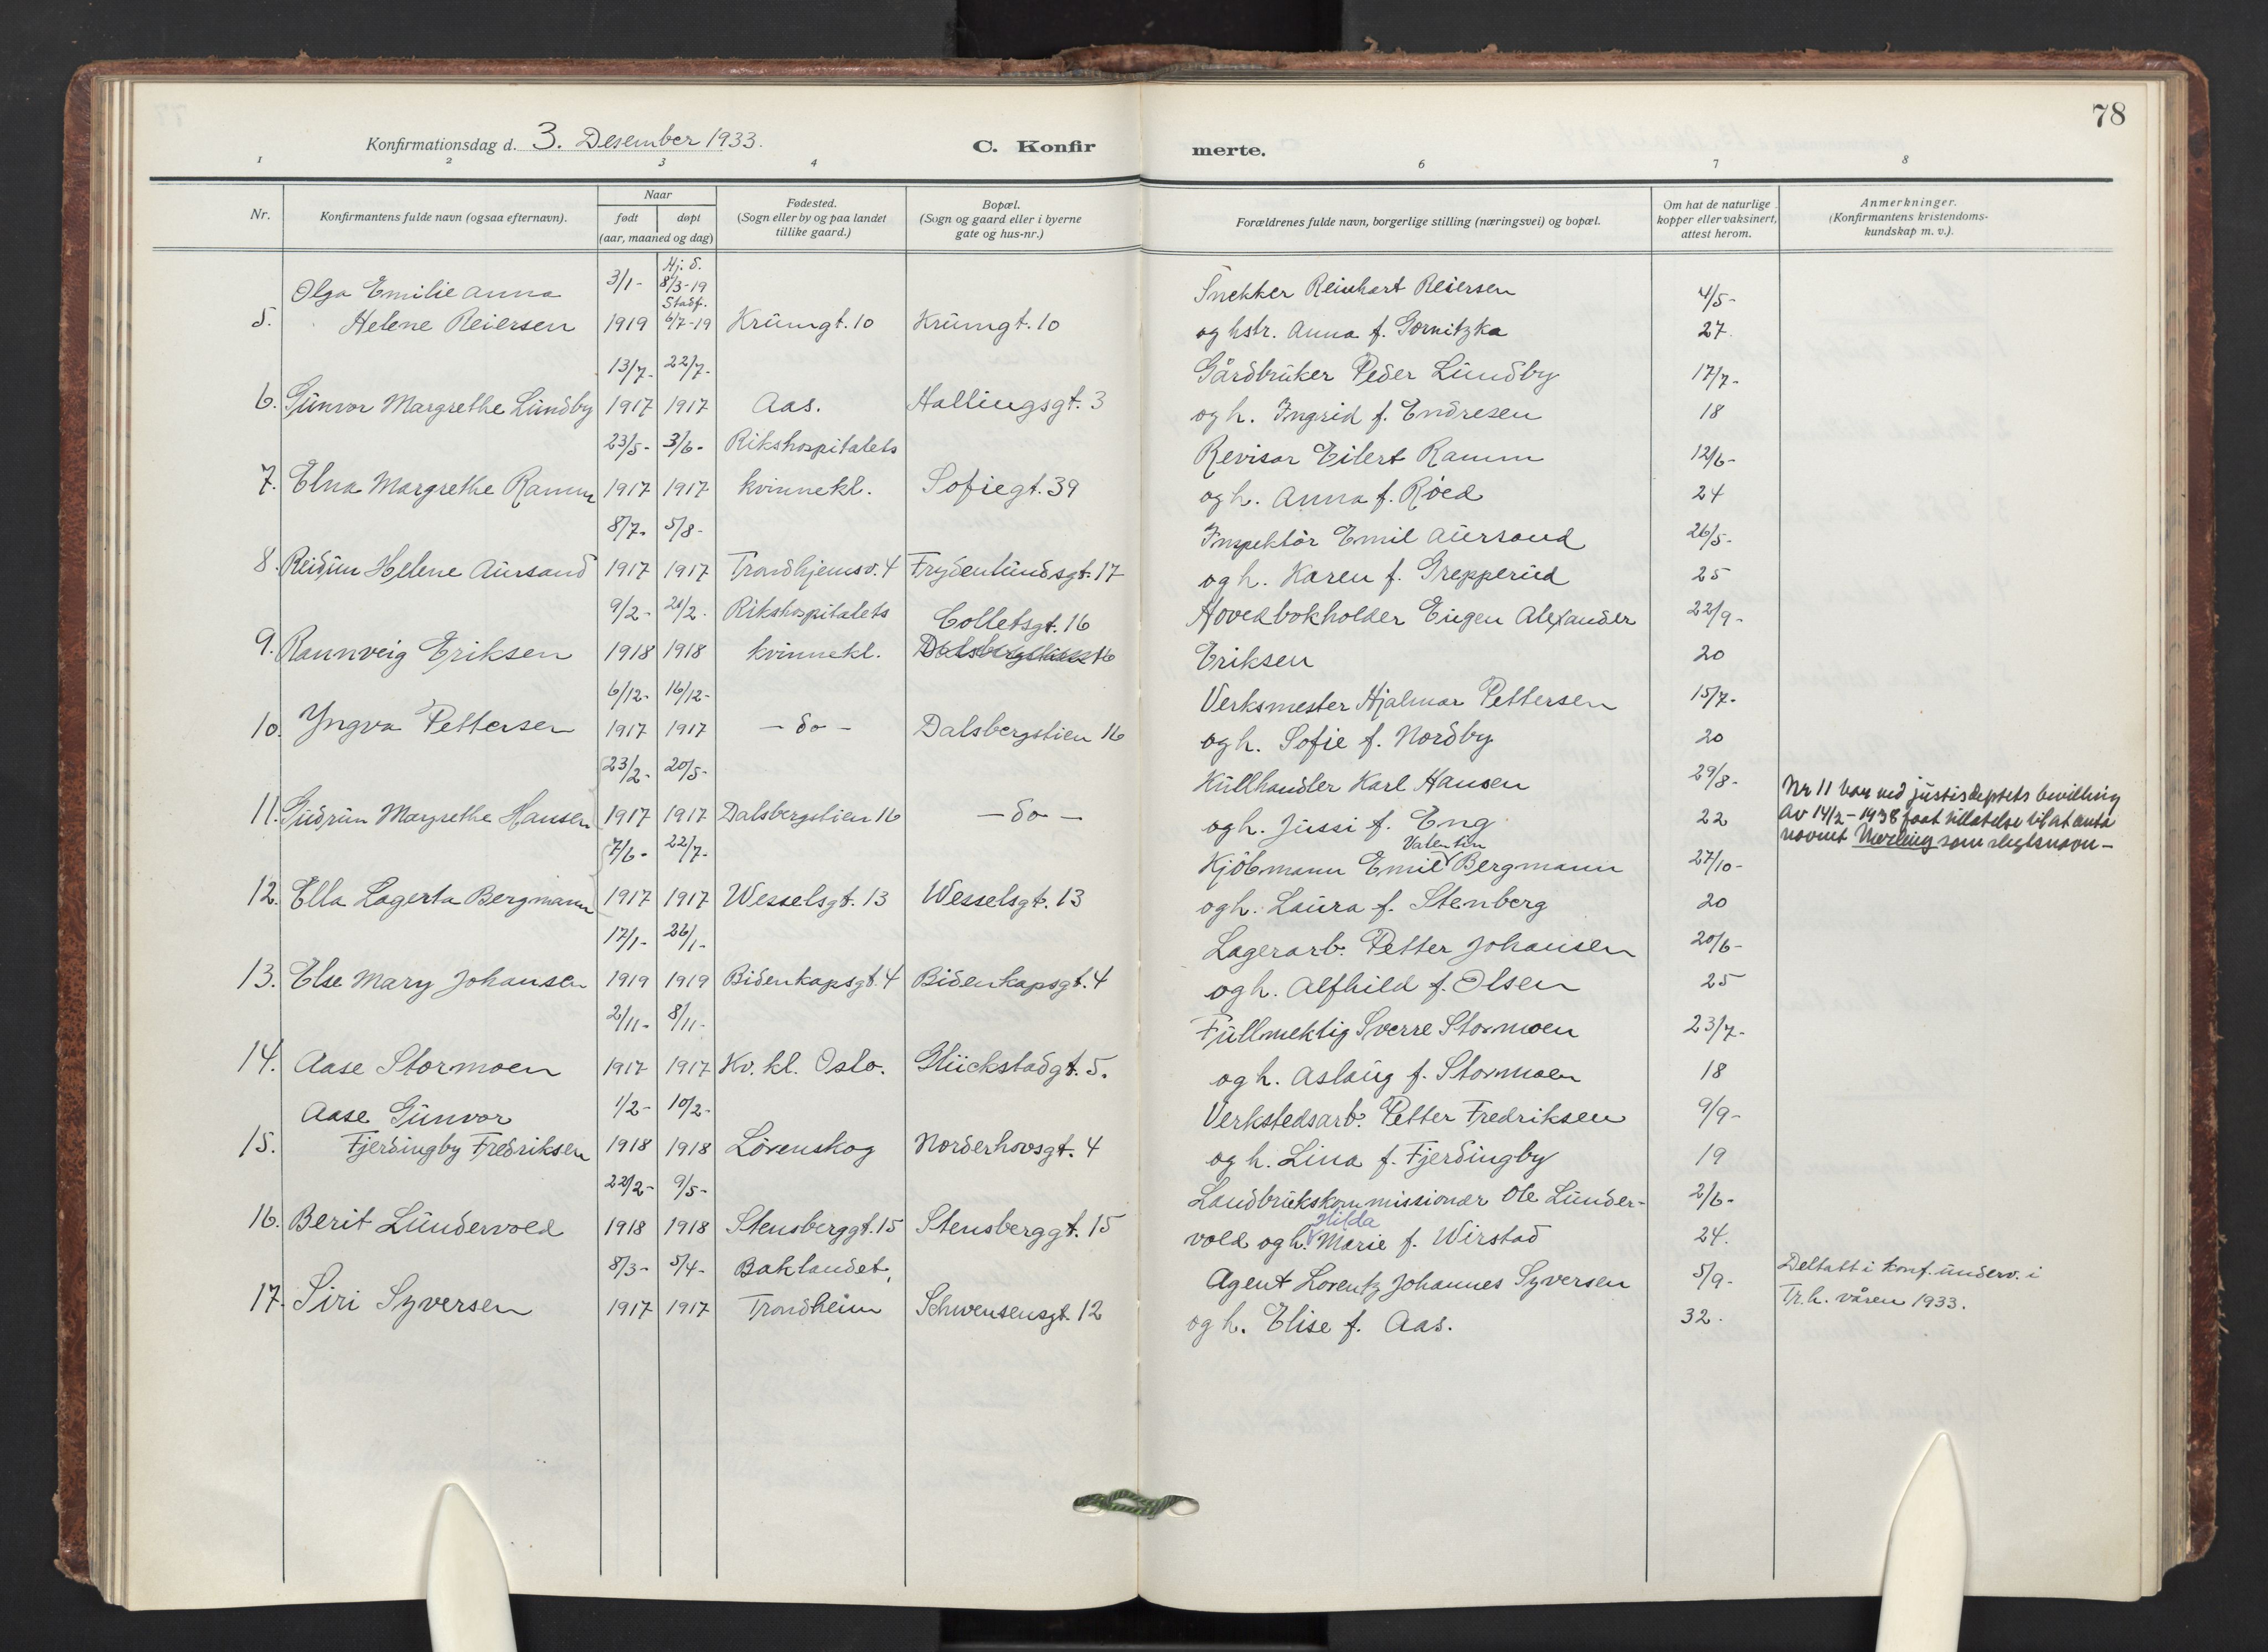 78
Konfirmationsdag d. 3. Desember 1933.
C. Konfir merte.
1 2 3 4 6 7 8
Nr.
Konfirmantens fulde navn (ogsaa efternavn).
Naar
født døpt
(aar, maaned og dag)
Fødested.
(Sogn eller by og paa landet
tillike gaard.)
Bopæl.
(Sogn og gaard eller i byerne
gate og hus-nr.)
Forældrenes fulde navn, borgerlige stilling (næringsvei) og bopæl.
Om hat de naturlige
kopper eller vaksinert,
attest herom.
Anmerkninger.
(Konfirmantens kristendoms-
kundskap m. v.).
Hj. d.
Olga Emilie Anna 3/1- 8/3-19 Snekker Reinhart Reiersen 4/5-
Stadf.
5. Helene Reiersen 1919 6/7-19 Krumgt. 10 Krumgt. 10 og hstr. Anna f. Gornitzka 27.
13/7- 22/7- Gårdbruker Peder Lundby 17/7-
6. Gunvor Margrethe Lundby 1917 1917 Aas. Hallingsgt. 3 og h. Ingrid f. Endresen 18
23/5- 3/6- Rikshospitalets Revisor Eilert Ramm 12/6-
7. Elna Margrethe Ramm 1917 1917 kvinnekl. Sofiegt. 39 og h. Anna f. Röed 24
8/7- 5/8- Inspektör Emil Aursand 26/5-
8. Reidun Helene Aursand 1917 1917 Trondhjemsv. 4 Frydenlundsgt. 17 og h. Karen f. Grepperud 25
9/2- 21/2- Rikshospitalets Colletsgt. 16 Hovedbokholder Eugen Alexander 22/9-
9. Rannveig Eriksen 1918 1918 kvinnekl. Dalsbergstien 16 Eriksen 20
6/12- 16/12- Verksmester Hjalmar Pettersen 15/7-
10. Yngva Pettersen 1917 1917 - do - Dalsbergstien 16 og h. Sofie f. Nordby 20
23/2- 20/5- Kullhandler Karl Hansen 29/8- Nr 11 har ved justisdeptets bevilling
11. Gudrun Margrethe Hansen 1917 1917 Dalsbergstien 16 - do - og h. Jussi f. Eng 22 av 14/2-1938 faat tillatelse til at anta
navnet som slegtsnavn -
Valentin
7/6- 22/7- Kjöbmann Emil Bergmann 27/10-
12. Ella Lagerta Bergmann 1917 1917 Wesselsgt. 13 Wesselsgt. 13 og h. Laura f. Stenberg 20
17/1- 26/1- Lagerarb. Petter Johansen 20/6-
13. Else Mary Johansen 1919 1919 Bidenkapsgt. 4 Bidenkapsgt. 4 og h. Alfhild f. Olsen 25
2/11- 8/11- Fullmektig Sverre Stormoen 23/7-
14. Aase Stormoen 1917 1917 Kv. kl. Oslo. Glückstadgt. 5. og h. Aslaug f. Stormoen 18
Aase Gunvor 1/2- 10/2- Verkstedsarb. Petter Fredriksen 9/9-
15. Fjerdingby Fredriksen 1918 1918 Lörenskog Norderhovsgt. 4 og h. Lina f. Fjerdingby 19
22/2- 9/5- Landbrukskommissionær Ole Lunder- 2/6-
Hilda
16. Berit Lundervold 1918 1918 Stensberggt. 15 Stensberggt. 15 vold og h. Marie f. Wirstad 24.
8/3- 5/4- Baklandet, Agent Lorentz Johannes Syversen 5/9- Deltatt i konf. underv. i
17. Siri Syversen 1917 1917 Trondheim Schwensensgt. 12 og h. Elise f. Aas. 32. Tr.h. våren 1933.